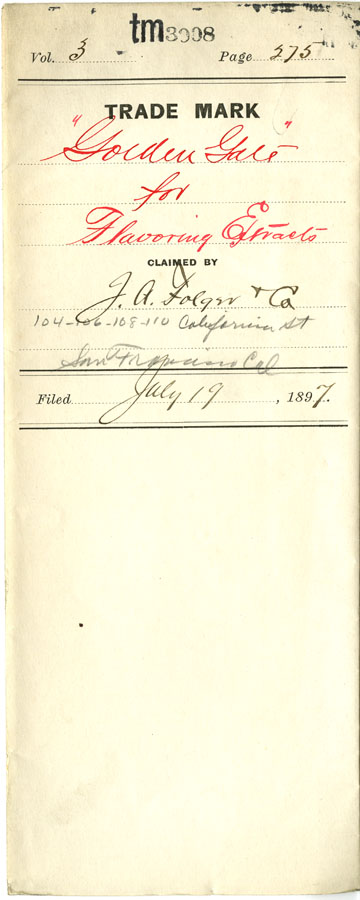 tm3008
Vol. 3 Page 275
TRADE MARK
"Golden Gate"
for
Flavoring Extracts
CLAIMED BY
J. A. Folger & Co
104-106-108-110 California St
San Francisco Cal
Filed July 19, 1897.